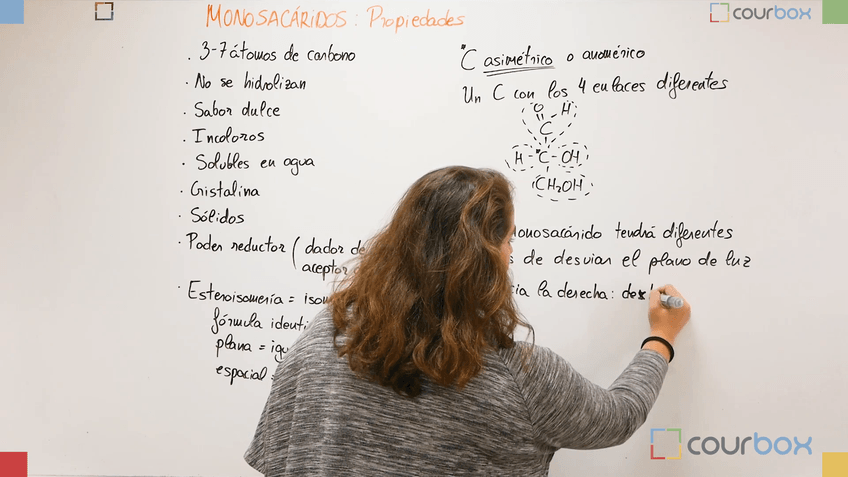 MONOSACÁRIDOS: Propiedades
courbox
. 3-7 átomos de carbono
· No se hidrolizan
· Sabor dulce
· Incoloros
· Solubles en agua
· Cristalina
· Sólidos
· Poder reductor ( dador de
aceptor
· Esteroisomería =
fórmula
plana =
espacial =
*C asimétrico o anomérico
Un C con los 4 enlaces diferentes
O H
C
H - *C - OH
CH₂OH
monosacárido tendrá diferentes
de desviar el plano de luz
la derecha:
courbox